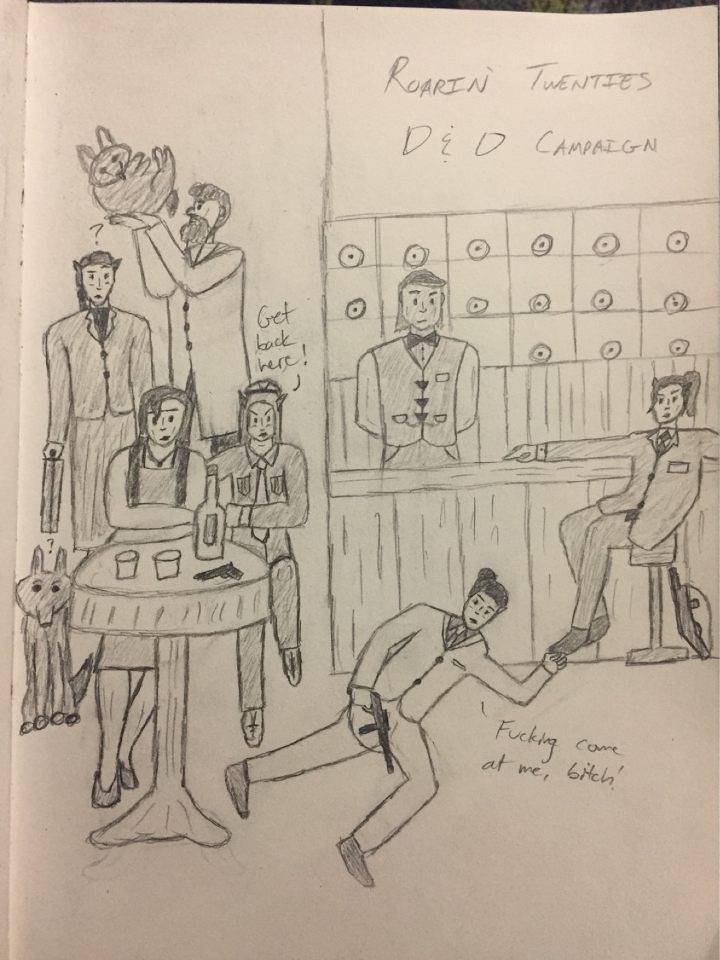 ROARIN' TWENTIES
D & D CAMPAIGN
?
Get
back
here!
?
Fucking come
at me, bitch!